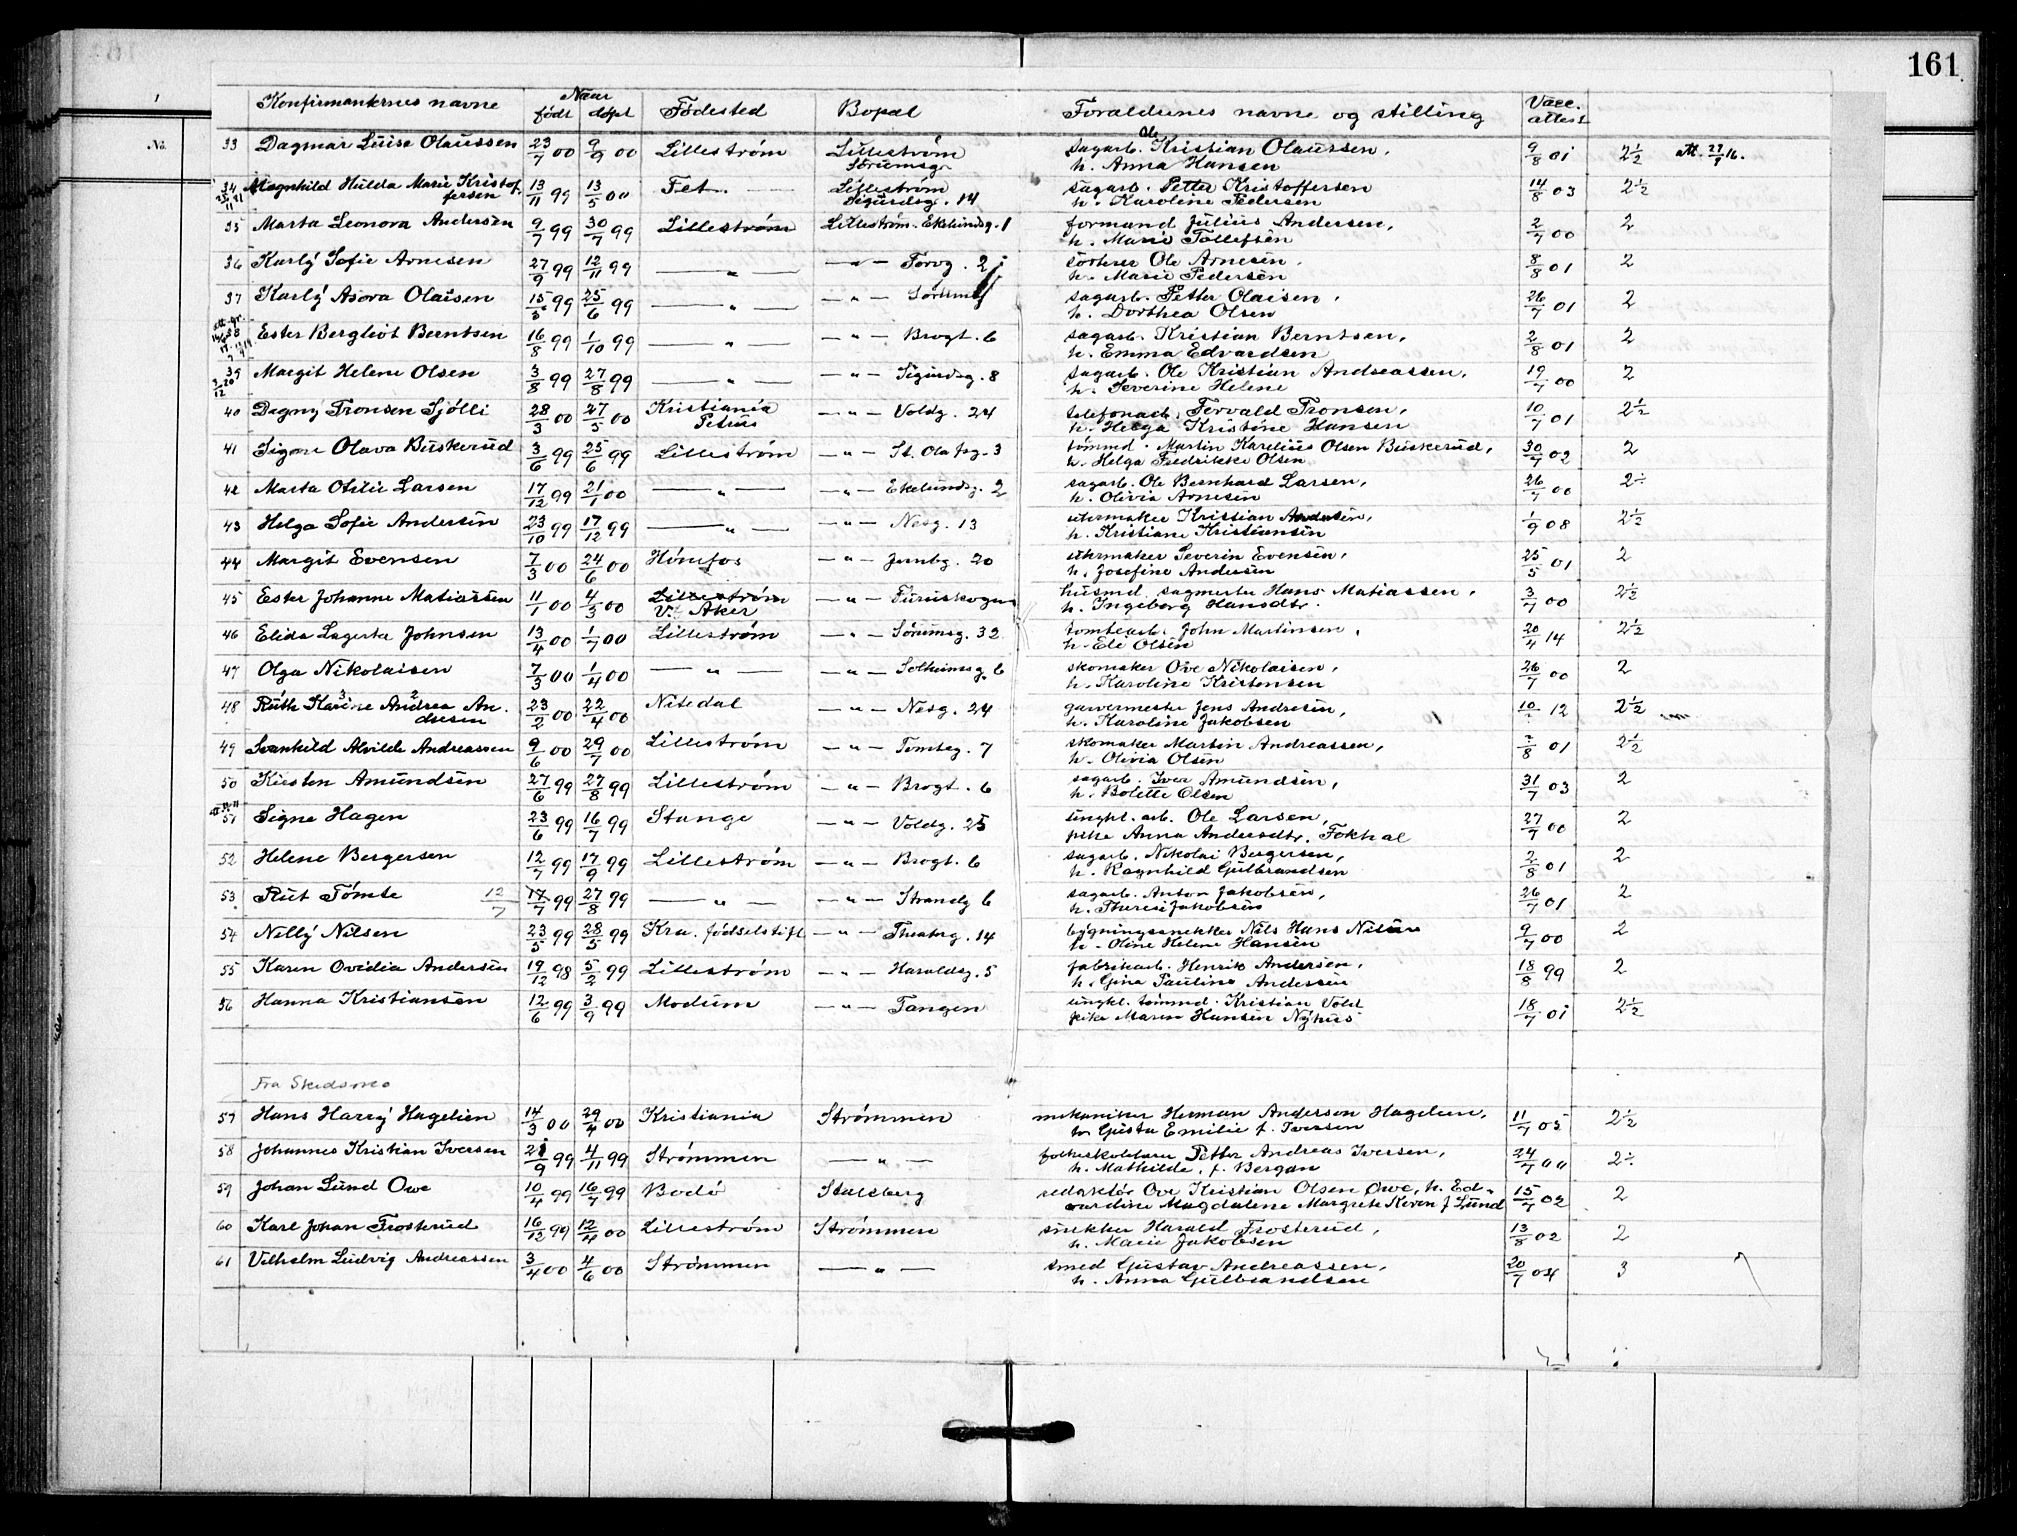 161
No.
Konfirmanternes navne Naar født døpt Fødested Bopæl Forældrenes navne og stilling Vacc. attest
33 Dagmar Luise Olaussen 23/7 00 9/9 00 Lillestrøm Lillestrøm Sørumsg. sagarb. Ole Kristian Olaussen, h. Anna Hansen 9/8 01 2½ att. 23/9 16.
34 Magnhild Hulda Marie Kristoffersen 13/11 99 13/5 00 Fet. Lillestrøm Sigurdsg. 14 sagarb. Petter Kristoffersen h. Karoline Pedersen 14/8 03 2½
35 Marta Leonora Andersen 9/7 99 30/7 99 Lillestrøm Lillestrøm. Ekelundsg. 1 formand Julius Andersen, h. Marie Tollefsen 2/7 00 2
36 Karly Sofie Arnesen 27/9 99 12/11 99 — " — — " — Torvg. 2 Ole Arnesen. h. Marie Pedersen 8/8 01 2
37 Karly Asora Olaisen 15/5 99 25/6 99 — " — — " — sagarb. Petter Olaisen, h. Dorthea Olsen 26/7 01 2
38 Ester Bergliot Berntsen 16/8 99 1/10 99 — " — — " — Brogt. 6 sagarb. Kristian Berntsen, h. Emma Edvardsen 2/8 01 2
39 Margit Helene Olsen 3/8 99 27/8 99 — " — — " — Sigurdsg. 8 sagarb. Ole Kristian Andreassen, h. Severine Helene 19/7 00 2
40 Dagny Tronsen Sjølli 28/3 00 27/5 00 Kristiania Petrus — " — Voldg. 24 telefonarb. Torvald Tronsen, h. Helga Kristine Hansen 10/7 01 2½
41 Signe Olava Buskerud 3/6 99 25/6 99 Lillestrøm — " — St. Olafsg. 3 tømmd. Martin Karelius Olsen Buskerud, h. Helga Fredrikke Olsen 30/7 02 2
42 Marta Otilie Larsen 17/12 99 21/1 00 — " — — " — Ekelundsg. 2 sagarb. Ole Bernhard Larsen, h. Olivia Arnesen 26/7 00 2
43 Helga Sofie Andersen 23/10 99 17/12 99 — " — — " — Nesg. 13 uhrmaker Kristian Andersen, h. Kristiane Kristiansen 1/9 08 2½
44 Margit Evensen 7/3 00 24/6 00 Hønefos — " — Jernbg. 20 uhrmaker Severin Evensen, h. Josefine Andersen 25/5 01 2
45 Ester Johanne Matiassen 11/1 00 4/3 00 Lillestrøm V. Aker — " — Furuskogen husmd. sagmester Hans Matiassen, h. Ingeborg Hansdtr. 3/7 00 2½
46 Elida Lagerta Johnsen 13/4 00 1/7 00 Lillestrøm — " — Sørumsg. 32 tomtearb. John Martinsen, h. Eli Olsen 20/4 14 2½
47 Olga Nikolaisen 7/3 00 1/4 00 — " — — " — Solheimsg. 6 skomaker Ove Nikolaisen, h. Karoline Kristensen 26/7 00 2
48 Ruth Karine 3 Andrea 2 Andresen 23/2 00 22/4 00 Nitedal — " — Nesg. 24 garvermester Jens Andresen, h. Karoline Jakobsen 12 2½
49 Svanhild Alvilde Andreassen 9/6 00 29/7 00 Lillestrøm — " — Tomteg. 7 skomaker Martin Andreassen, h. Olivia Olsen 01 2½
50 Kirsten Amundsen 27/6 99 27/8 99 Lillestrøm — " — Brogt. 6 sagarb. Iver Amundsen, h. Bolette Olsen 31/7 03 2
51 Signe Hagen 23/6 99 16/7 99 Stange — " — Voldg. 25 ungkl. arb. Ole Larsen, pike Anna Andersdtr. Fokhal 27/7 00 2
52 Helene Bergersen 12/7 99 17/9 99 Lillestrøm — " — Brogt. 6 sagarb. Nikolai Bergersen, h. Ragnhild Gulbrandsen 2/8 01 2
53 Rut Tømte 12/7 17/7 99 27/8 99 — " — — " — Strandg 6 sagarb. Anton Jakobsen, h. Therese Jakobsen 26/7 01 2
54 Nelly Nilsen 23/5 99 28/5 99 Kra. fødselstift — " — Theaterg. 14 bygningssnekker Nils Hans Nilsen h. Oline Helene Hansen 9/7 00 2
55 Karen Ovidia Andersen 19/12 98 5/2 99 Lillestrøm — " — Haraldsg. 5 fabrikarb. Henrik Andersen, h. Gina Pauline Andersen 18/8 99 2
56 Hanna Kristiansen 12/6 99 3/9 99 Modum — " — Tangen ungkl. tømmd. Kristian Vold pike Maren Hansen Nyhus 18/7 01 2½
Fra Skedsmo
57 Hans Harry Hagelien 14/3 00 29/4 00 Kristiania Strømmen mekaniker Herman Anderson Hagelien, h. Gusta Emilie f. Iversen 11/7 05 2½
58 Johannes Kristian Iversen 21/9 99 4/11 99 Strømmen — " — folkeskolelærer Petter Andreas Iversen, h. Mathilde, f. Bergan 24/7 00 2
59 Johan Lund Owe 10/4 99 16/7 99 Bodø Stalsberg redaktør Ove Kristian Olsen Owe, h. Edvardine Magdalene Margrete Keren f Lund 15/7 02 2
60 Karl Johan Frosterud 16/12 99 12/4 00 Lillestrøm Strømmen snekker Harald Frosterud, h. Marie Jakobsen 13/8 02 2
61 Vilhelm Ludvig Andreassen 3/4 00 4/6 00 Strømmen — " — smed Gustav Andreassen, h. Anna Gulbrandsen 20/7 04 3